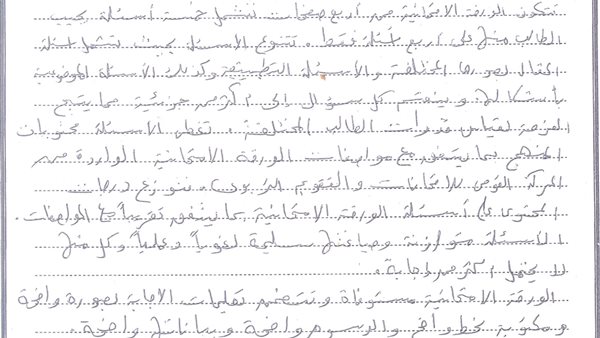 تتكون الورقة الامتحانية من أربع صفحات تشمل خمسة أسئلة يجيب
الطالب منها على أربع أسئلة فقط. تتنوع الأسئلة بحيث تشمل أسئلة
المقال بصورها المختلفة والأسئلة التطبيقية وكذلك الأسئلة الموضوعية
بأشكالها وينقسم كل سؤال إلى أكثر من جزئية مما يتيح
الفرصة لقياس قدرات الطالب المختلفة. تغطي الأسئلة محتويات
المنهج بما يتفق مع مواصفات الورقة الامتحانية الواردة من
المركز القومي للامتحانات والتقويم التربوي. تتوزع درجات
المحتوى على أسئلة الورقة الامتحانية بما يتفق تقريباً مع المواصفات.
الأسئلة متوازنة وصياغتها سليمة لغوياً وعلمياً وكل منها
لا يحتمل أكثر من إجابة.
الورقة الامتحانية مستوفاة وتتضمن تعليمات الإجابة بصورة واضحة
ومكتوبة بخط واضح والرسوم واضحة وبياناتها واضحة.